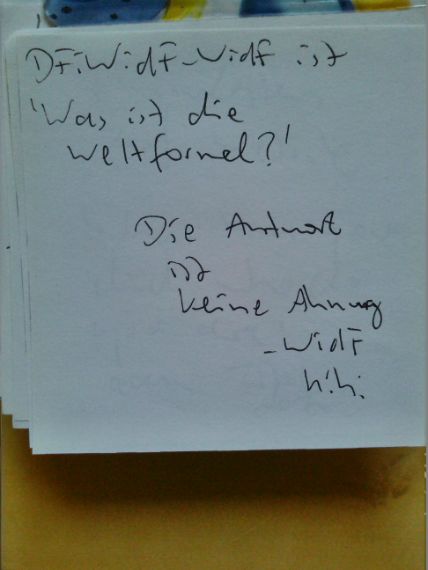 DFiWidF-WidF ist
'Was ist die
Weltformel?'
Die Antwort
ist
keine Ahnung
-WidF
hihi